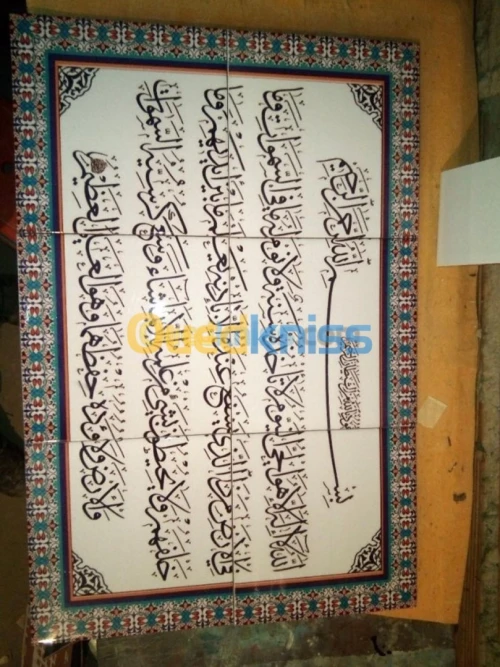 بسم الله الرحمن الرحيم
الله لا إله إلا هو الحي القيوم لا تأخذه سنة ولا نوم له ما في السموات وما
في الأرض من ذا الذي يشفع عنده إلا بإذنه يعلم ما بين أيديهم وما
خلفهم ولا يحيطون بشيء من علمه إلا بما شاء وسع كرسيه السموات
والأرض ولا يؤده حفظهما وهو العلي العظيم
Ouedkniss